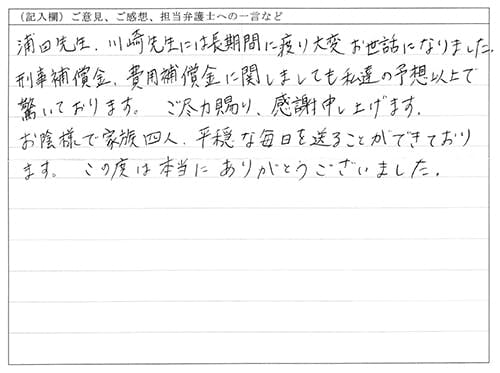 （記入欄）ご意見、ご感想、担当弁護士への一言など
浦田先生、川崎先生には長期間に疲り大変お世話になりました。
刑事補償金、費用補償金に関しましても私達の予想以上で
驚いております。 ご尽力賜り、感謝申し上げます。
お陰様で家族四人、平穏な毎日を送ることができており
ます。 この度は本当にありがとうございました。